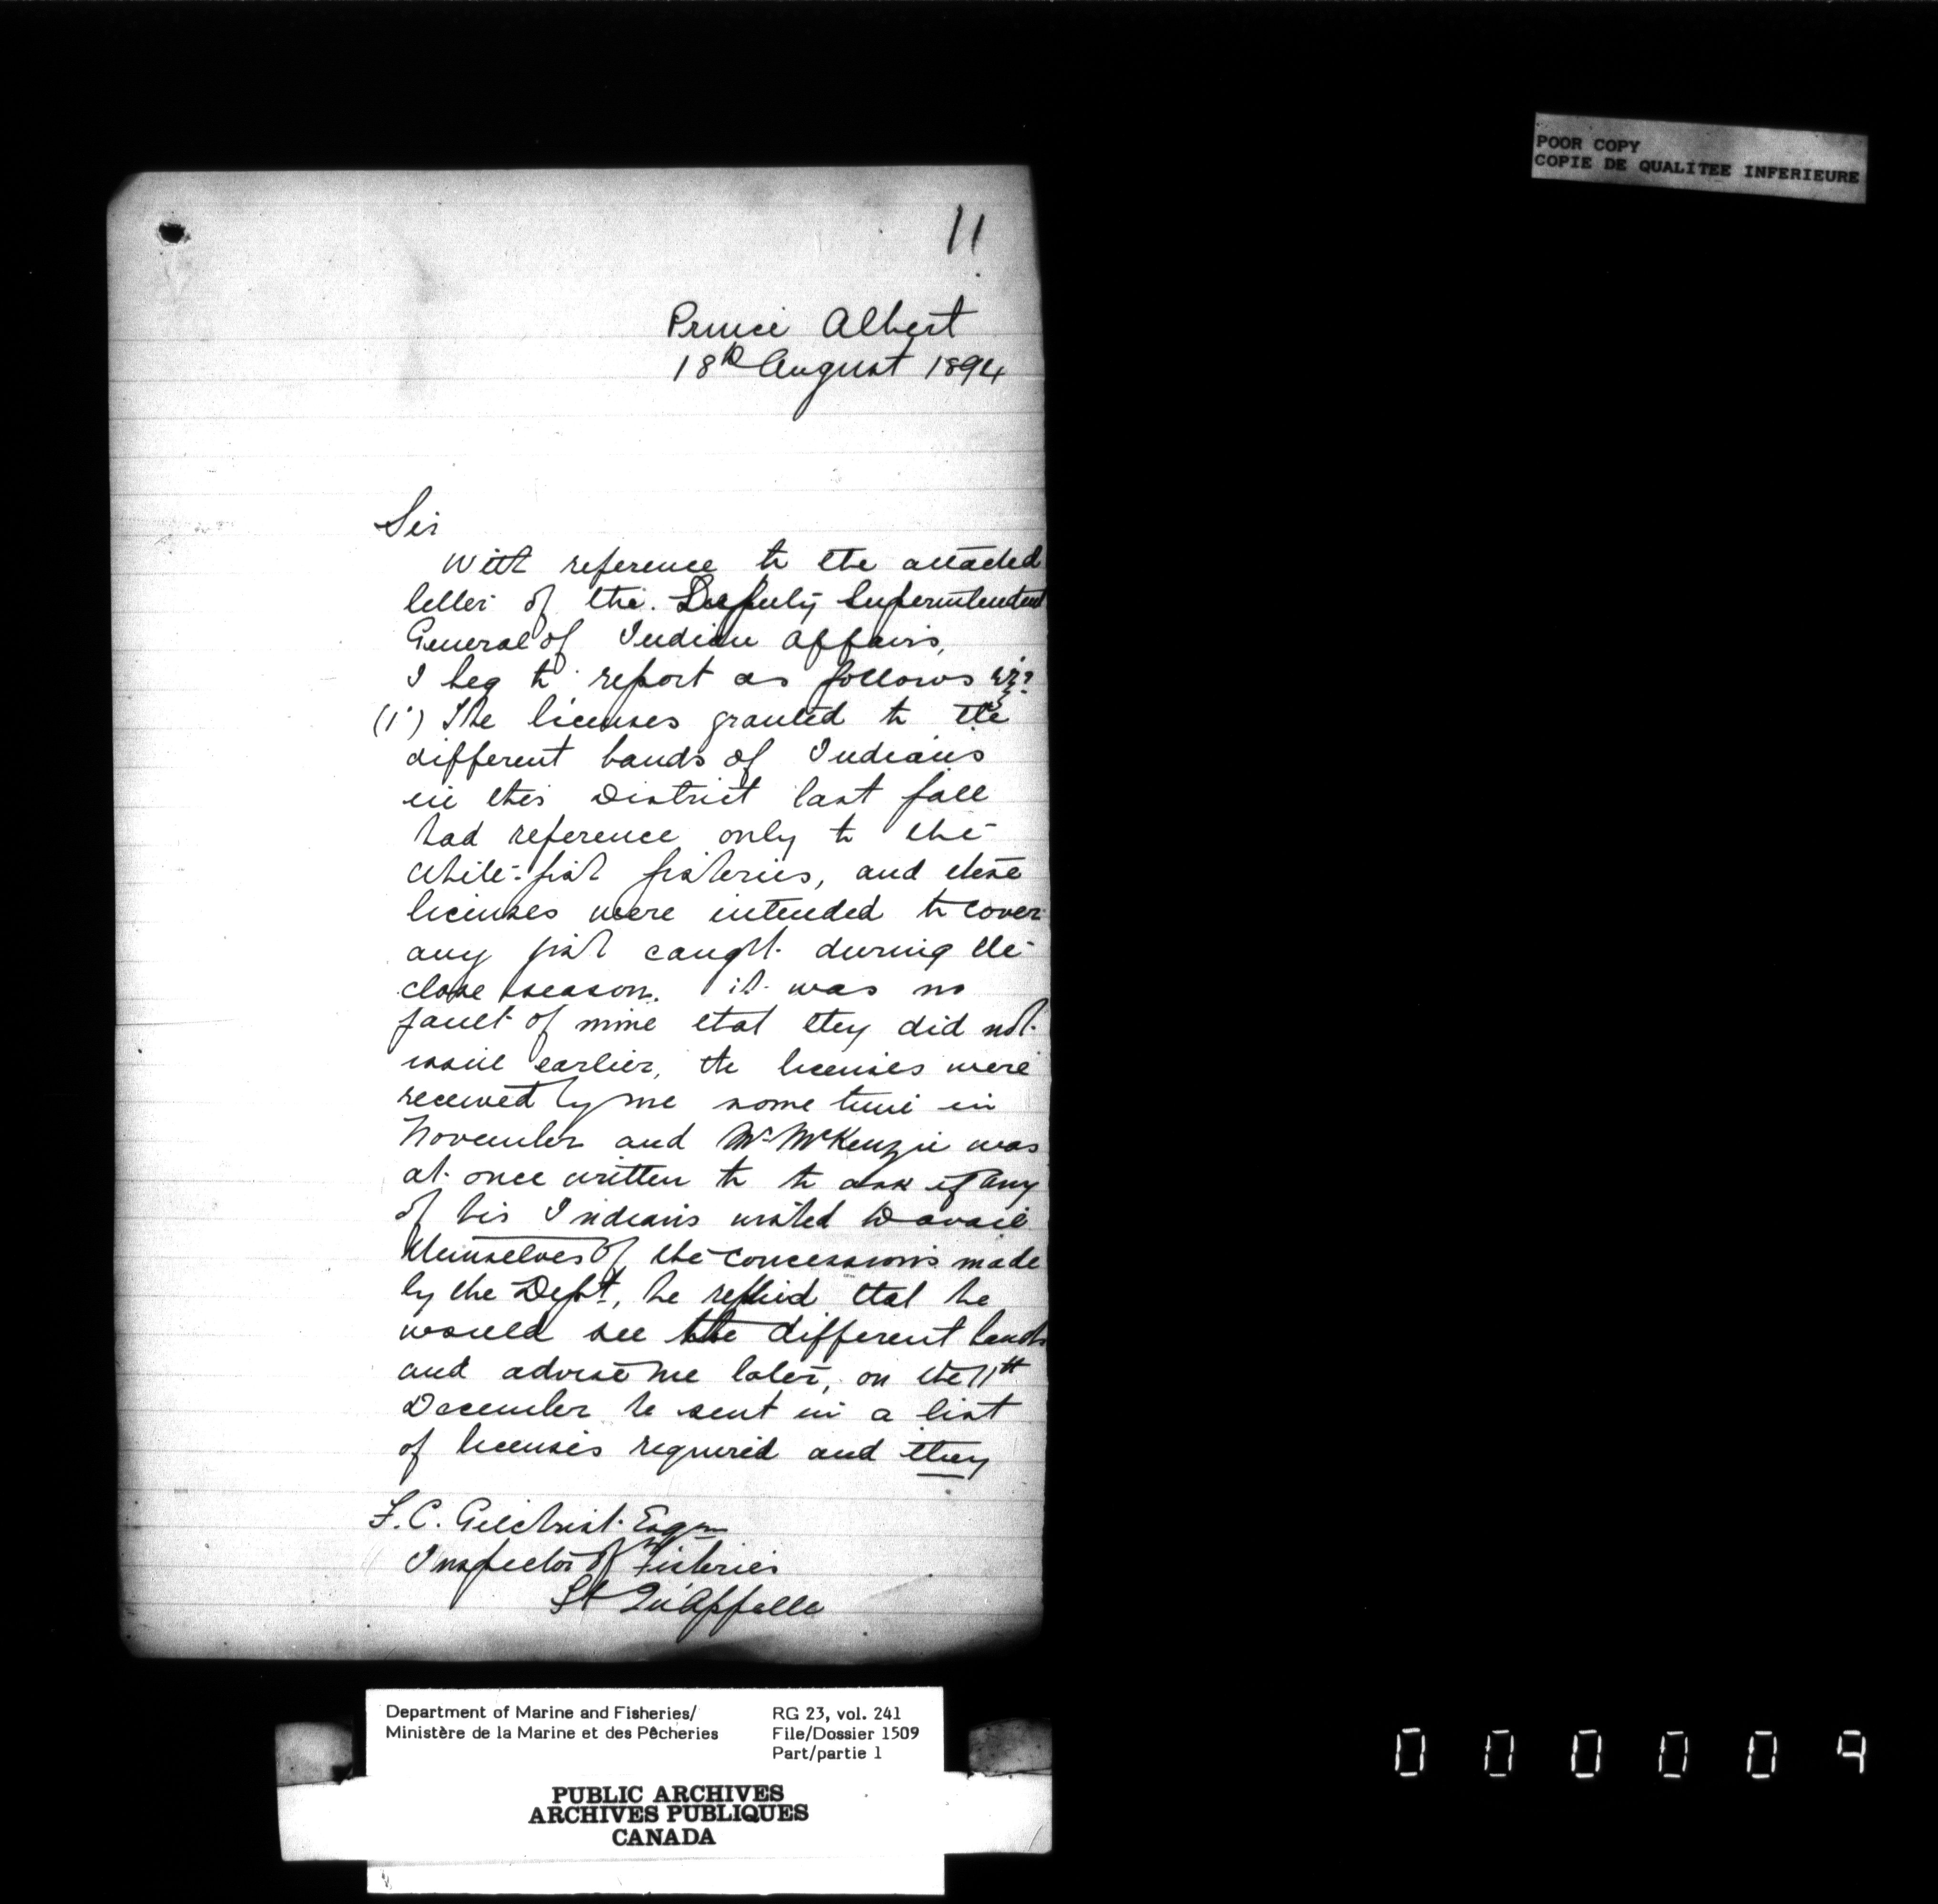 POOR COPY
COPIE DE QUALITEE INFERIEURE
11
Prince Albert
18th August 1894
Sir
With reference to the attached
letter of the Deputy Superintendent
General of Indian Affairs,
I beg to report as follows viz:
(1) The licenses granted to the
different bands of Indians
in this District last fall
had reference only to the
white-fish fisheries, and these
licenses were intended to cover
any fish caught during the
close season. it was no
fault of mine that they did not
issue earlier, the licenses were
received by me some time in
November and Mr McKenzie was
at once written to to ask if any
of his Indians wished to avail
themselves of the concessions made
by the Dept, he replied that he
would see the different bands
and advise me later, on the 11th
December he sent in a list
of licenses required and they
F. C. Gilchrist Esqre
Inspector of Fisheries
Ft Qu'Appelle
Department of Marine and Fisheries/
Ministère de la Marine et des Pêcheries
RG 23, vol. 241
File/Dossier 1509
Part/partie 1
PUBLIC ARCHIVES
ARCHIVES PUBLIQUES
CANADA
000009